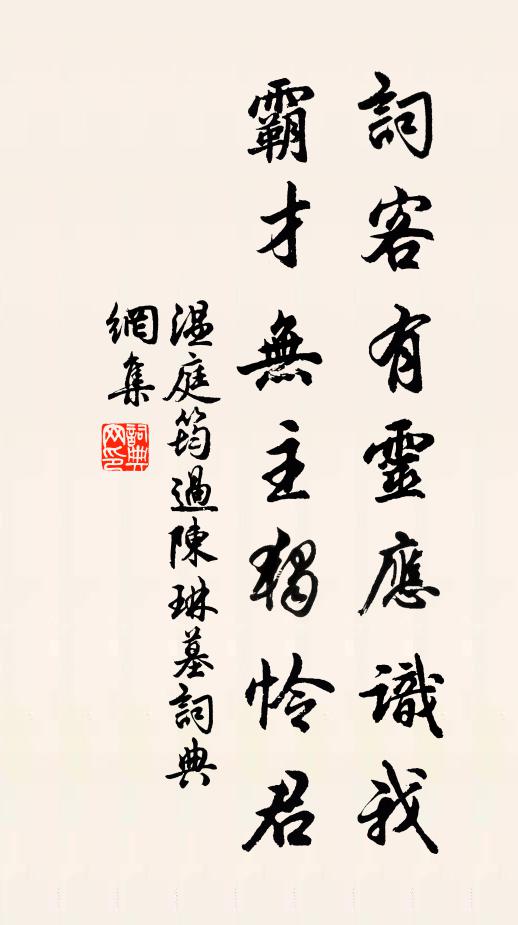 詞客有靈應識我
霸才無主獨怜君
温庭筠過陳琳墓詞典
網集
詞典
网印